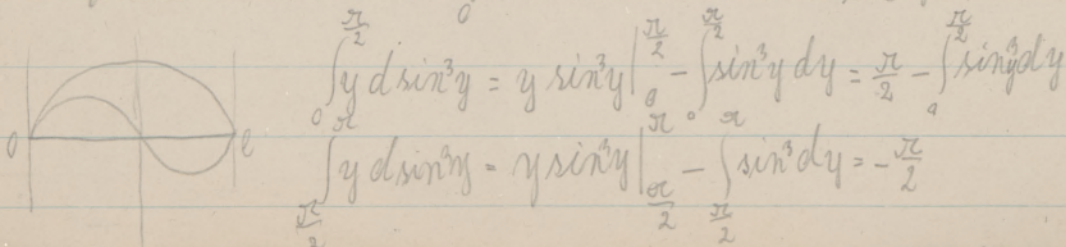 0 e
∫₀^{π/2} y d sin³y = y sin³y |₀^{π/2} − ∫₀^{π/2} sin³y dy = π/2 − ∫₀^{π/2} sin³y dy
∫_{π/2}^{π} y d sin³y = y sin³y |_{π/2}^{π} − ∫_{π/2}^{π} sin³ dy = −π/2